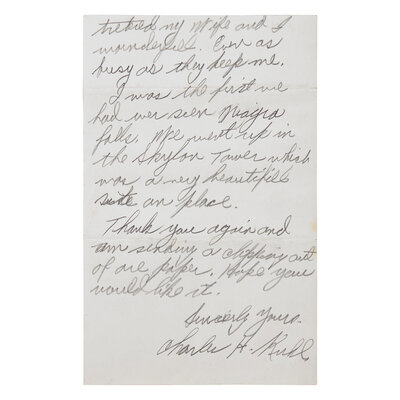 treated my Wife and I
wounderfull. Even as
busy as they keep me.
I was the first we
had wer seen Niagra
falls. We went up in
the Skylon Tower which
was a very beautifull
on place.
Thank you again and
am sending a clipping out
of are paper. Hope you
would like it.
Sincerly Yours.
Charles H. Ruhl